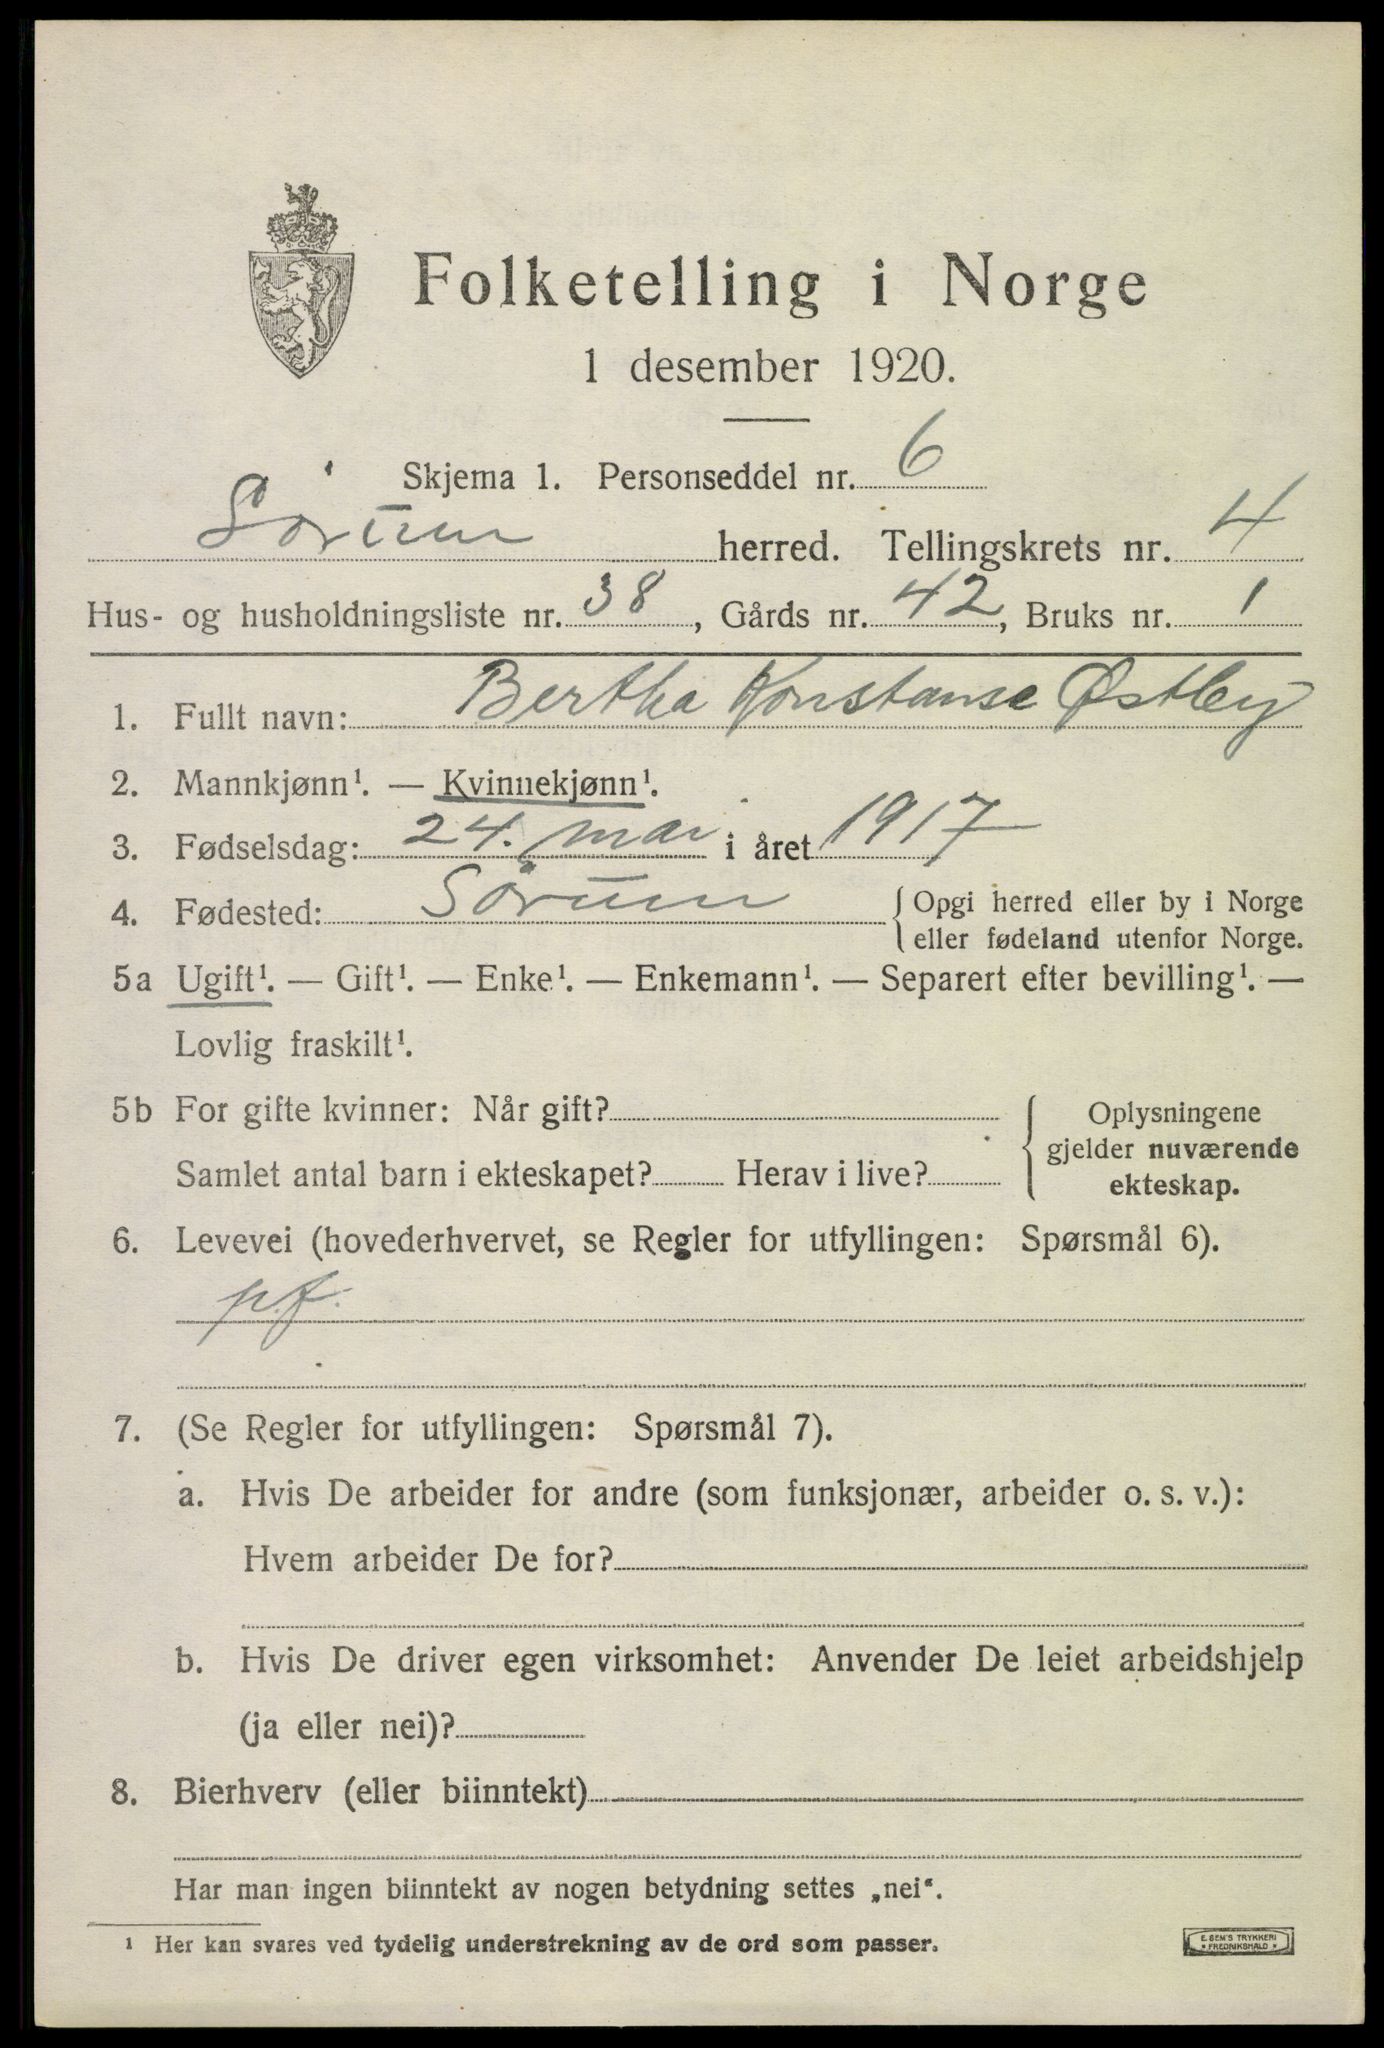 Folketelling i Norge
1 desember 1920.
Skjema 1. Personseddel nr. 6
Sørum herred. Tellingskrets nr. 4
Hus- og husholdningsliste nr. 38, Gårds nr. 42, Bruks nr. 1
1. Fullt navn: Bertha Konstanse Østby
2. Mannkjønn¹. — Kvinnekjønn¹.
3. Fødselsdag: 24. mai i året 1917
4. Fødested: Sørum { Opgi herred eller by i Norge
eller fødeland utenfor Norge.
5a Ugift¹. — Gift¹. — Enke¹. — Enkemann¹. — Separert efter bevilling¹. —
Lovlig fraskilt¹.
5b For gifte kvinner: Når gift?
Samlet antal barn i ekteskapet? Herav i live?
{ Oplysningene
gjelder nuværende
ekteskap.
6. Levevei (hovederhvervet, se Regler for utfyllingen: Spørsmål 6).
p.f.
7. (Se Regler for utfyllingen: Spørsmål 7).
a. Hvis De arbeider for andre (som funksjonær, arbeider o. s. v.):
Hvem arbeider De for?
b. Hvis De driver egen virksomhet: Anvender De leiet arbeidshjelp
(ja eller nei)?
8. Bierhverv (eller biinntekt)
Har man ingen biinntekt av nogen betydning settes „nei“.
¹ Her kan svares ved tydelig understrekning av de ord som passer.
E. SEM'S TRYKKERI
* FREDRIKSHALD *